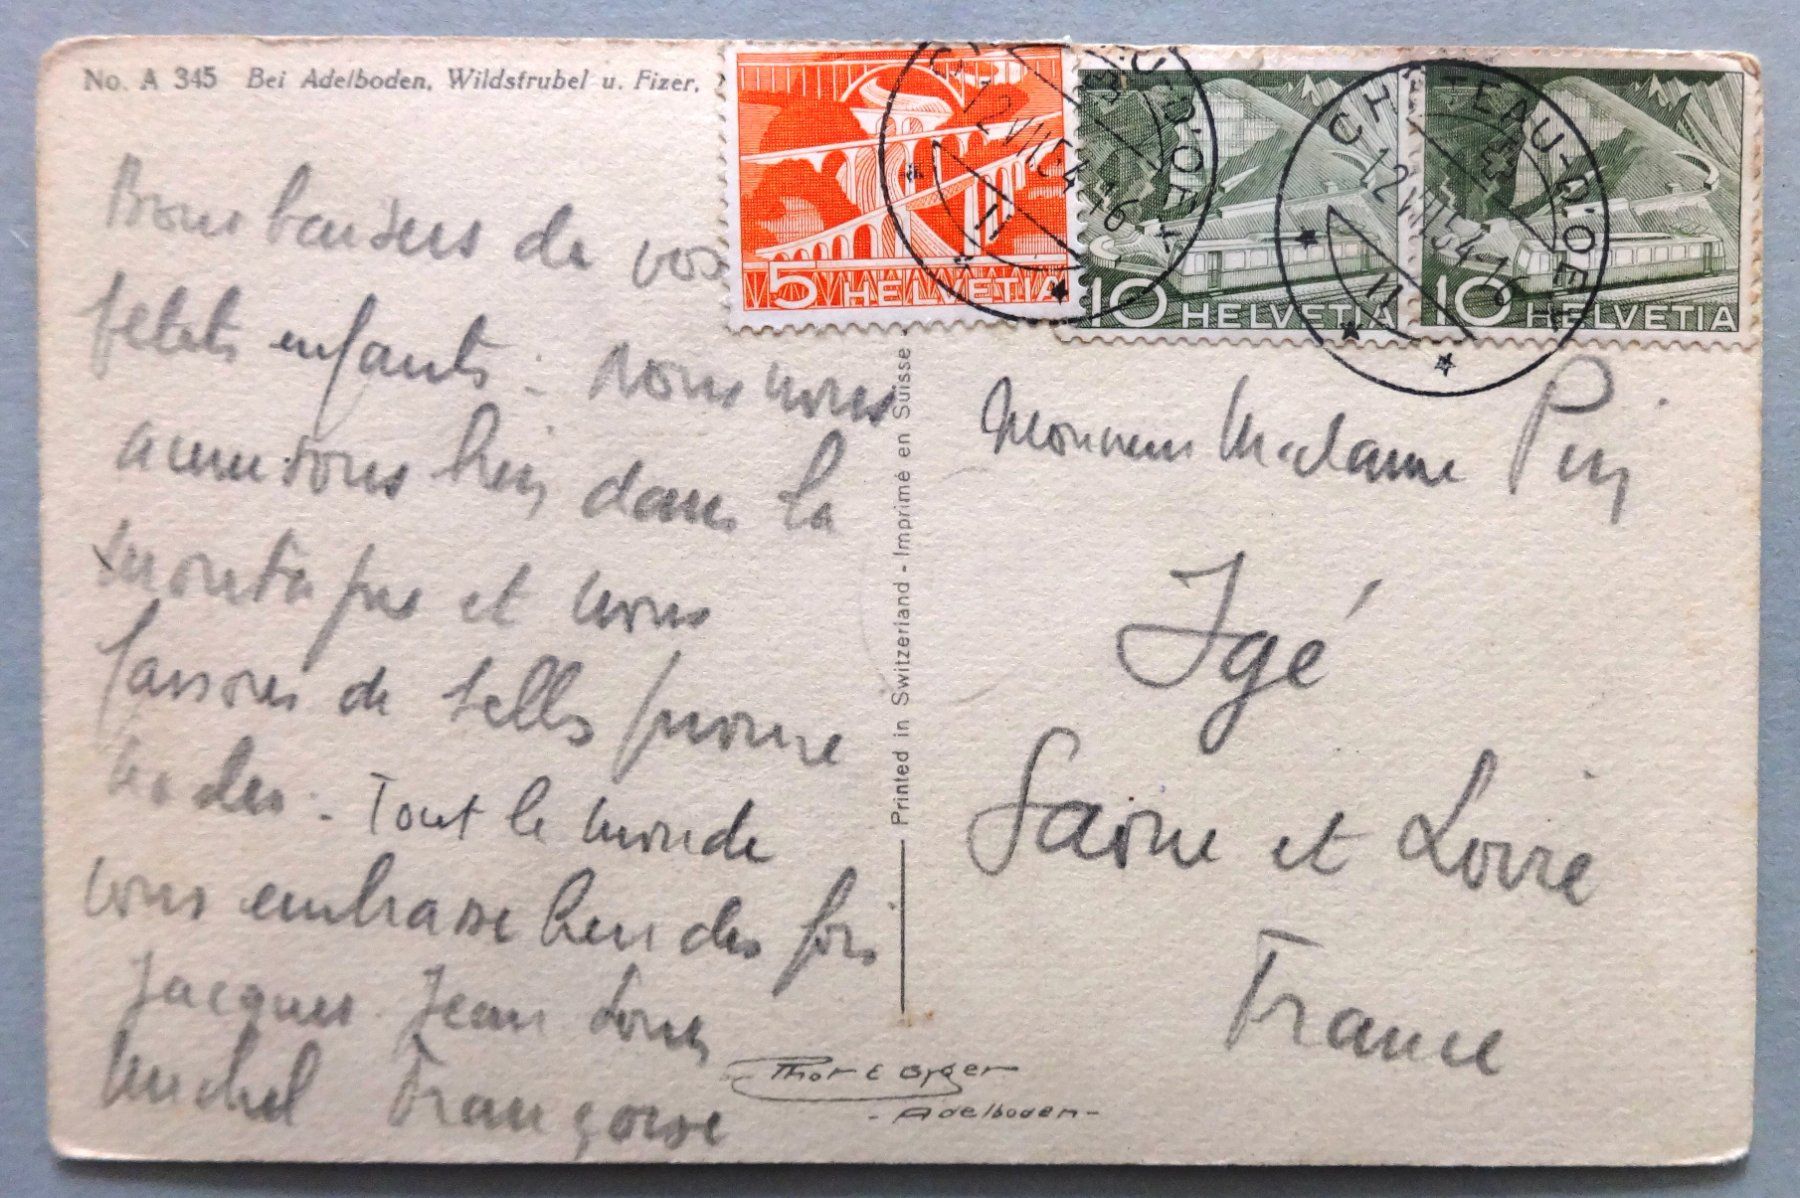 No. A 345 Bei Adelboden, Wildstrubel u. Fizer.
Bons baisers de vos
petits enfants. Nous nous
amusons bien dans la
montagne et nous
faisons de belles prome
nades. Tout le monde
vous embrasse bien des fois
Jacques Jean Louis
Michel Françoise
5 HELVETIA
10 HELVETIA
10 HELVETIA
CHATEAU-D'OEX
12 VII 54-16
CHATEAU-D'OEX
12 VII 54-16
Printed in Switzerland - Imprimé en Suisse
Monsieur Madame
Igé
Saône et Loire
France
Phot E Gyger
- Adelboden -